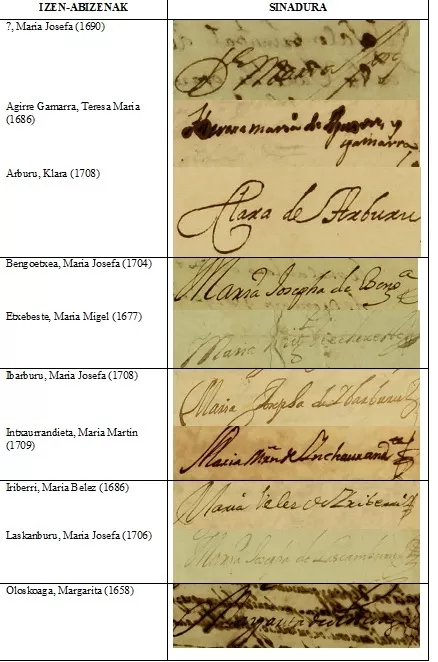 IZEN-ABIZENAK SINADURA
?, Maria Josefa (1690)
Dª Maria
Agirre Gamarra, Teresa Maria
(1686)
Teresa maria de Aguirre y
gamarra
Arburu, Klara (1708)
Clara de Arburu
Bengoetxea, Maria Josefa (1704)
Maria Josepha de Bengª
Etxebeste, Maria Migel (1677)
Maria
Ibarburu, Maria Josefa (1708)
Maria Josepha de Ibarburu
Intxaurrandieta, Maria Martin
(1709)
Maria Mrn de Inchaurand
Iriberri, Maria Belez (1686)
Maria Velez de Iriberri
Laskanburu, Maria Josefa (1706)
Maria Josepha de Lascamburu
Oloskoaga, Margarita (1658)
Margarita